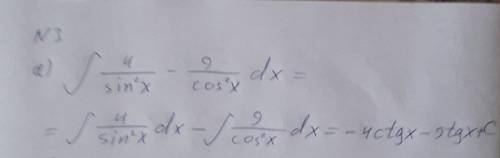 N3
a) ∫ 4/sin²x - 9/cos²x dx =
= ∫ 4/sin²x dx - ∫ 9/cos²x dx = -4ctgx - 9tgx+C